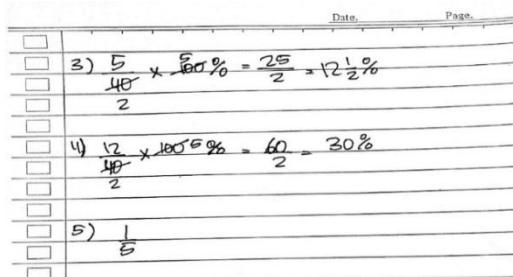 Date. Page.
3) 5/40 × 100 5 % = 25/2 = 12 1/2 %
2
4) 12/40 × 100 5 % = 60/2 = 30%
2
5) 1/5